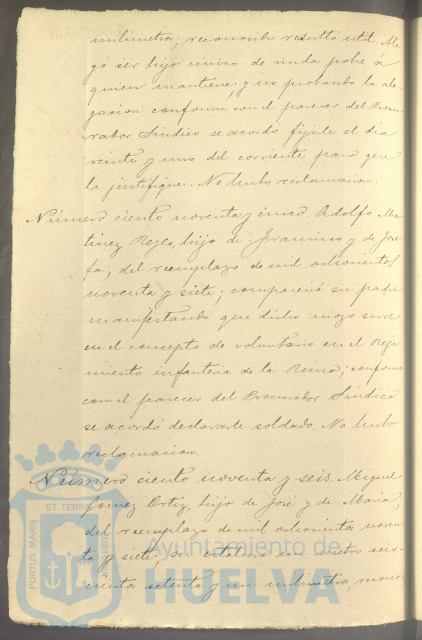 milimetros; reconocido resultó util. Ale-
gó ser hijo unico de viuda pobre á
quien mantiene; y no probando la ale-
gacion conforme con el parecer del Procu-
rador Sindico se acordó fijarle el dia
veinte y uno del corriente para que
la justifique. No hubo reclamacion.
Número ciento noventa y cinco. Adolfo Mar-
tinez Reyes, hijo de Francisco y de Jose-
fa; del reemplazo de mil ochocientos
noventa y siete; compareció su padre
manifestando que dicho mozo sirve
en el concepto de voluntario en el Regi-
miento infanteria de la Reina; conforme
con el parecer del Procurador Sindico
se acordó declararle soldado. No hubo
reclamacion.
Número ciento noventa y seis. Miguel
Gomez Ortiz, hijo de José y de Maria,
del reemplazo de mil ochocientos noven-
ta y siete; su estatura un metro seis-
cientos setenta y un milimetros; recono-
PORTUS MARIS
ET TERRÆ
Ayuntamiento de
HUELVA